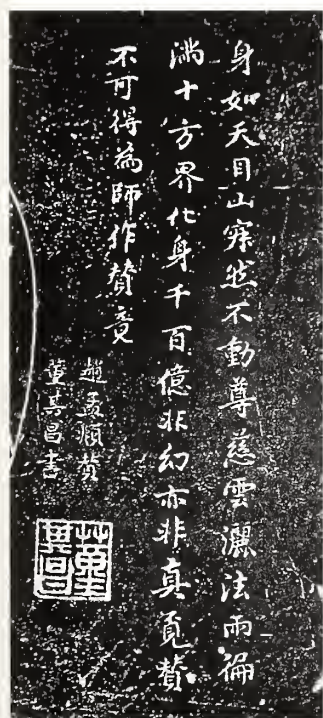 身如天目山寂然不動尊慈雲灑法雨徧
滿十方界化身千百億非幻亦非真覓贊
不可得為師作贊竟
趙孟頫贊
董其昌書
董其昌